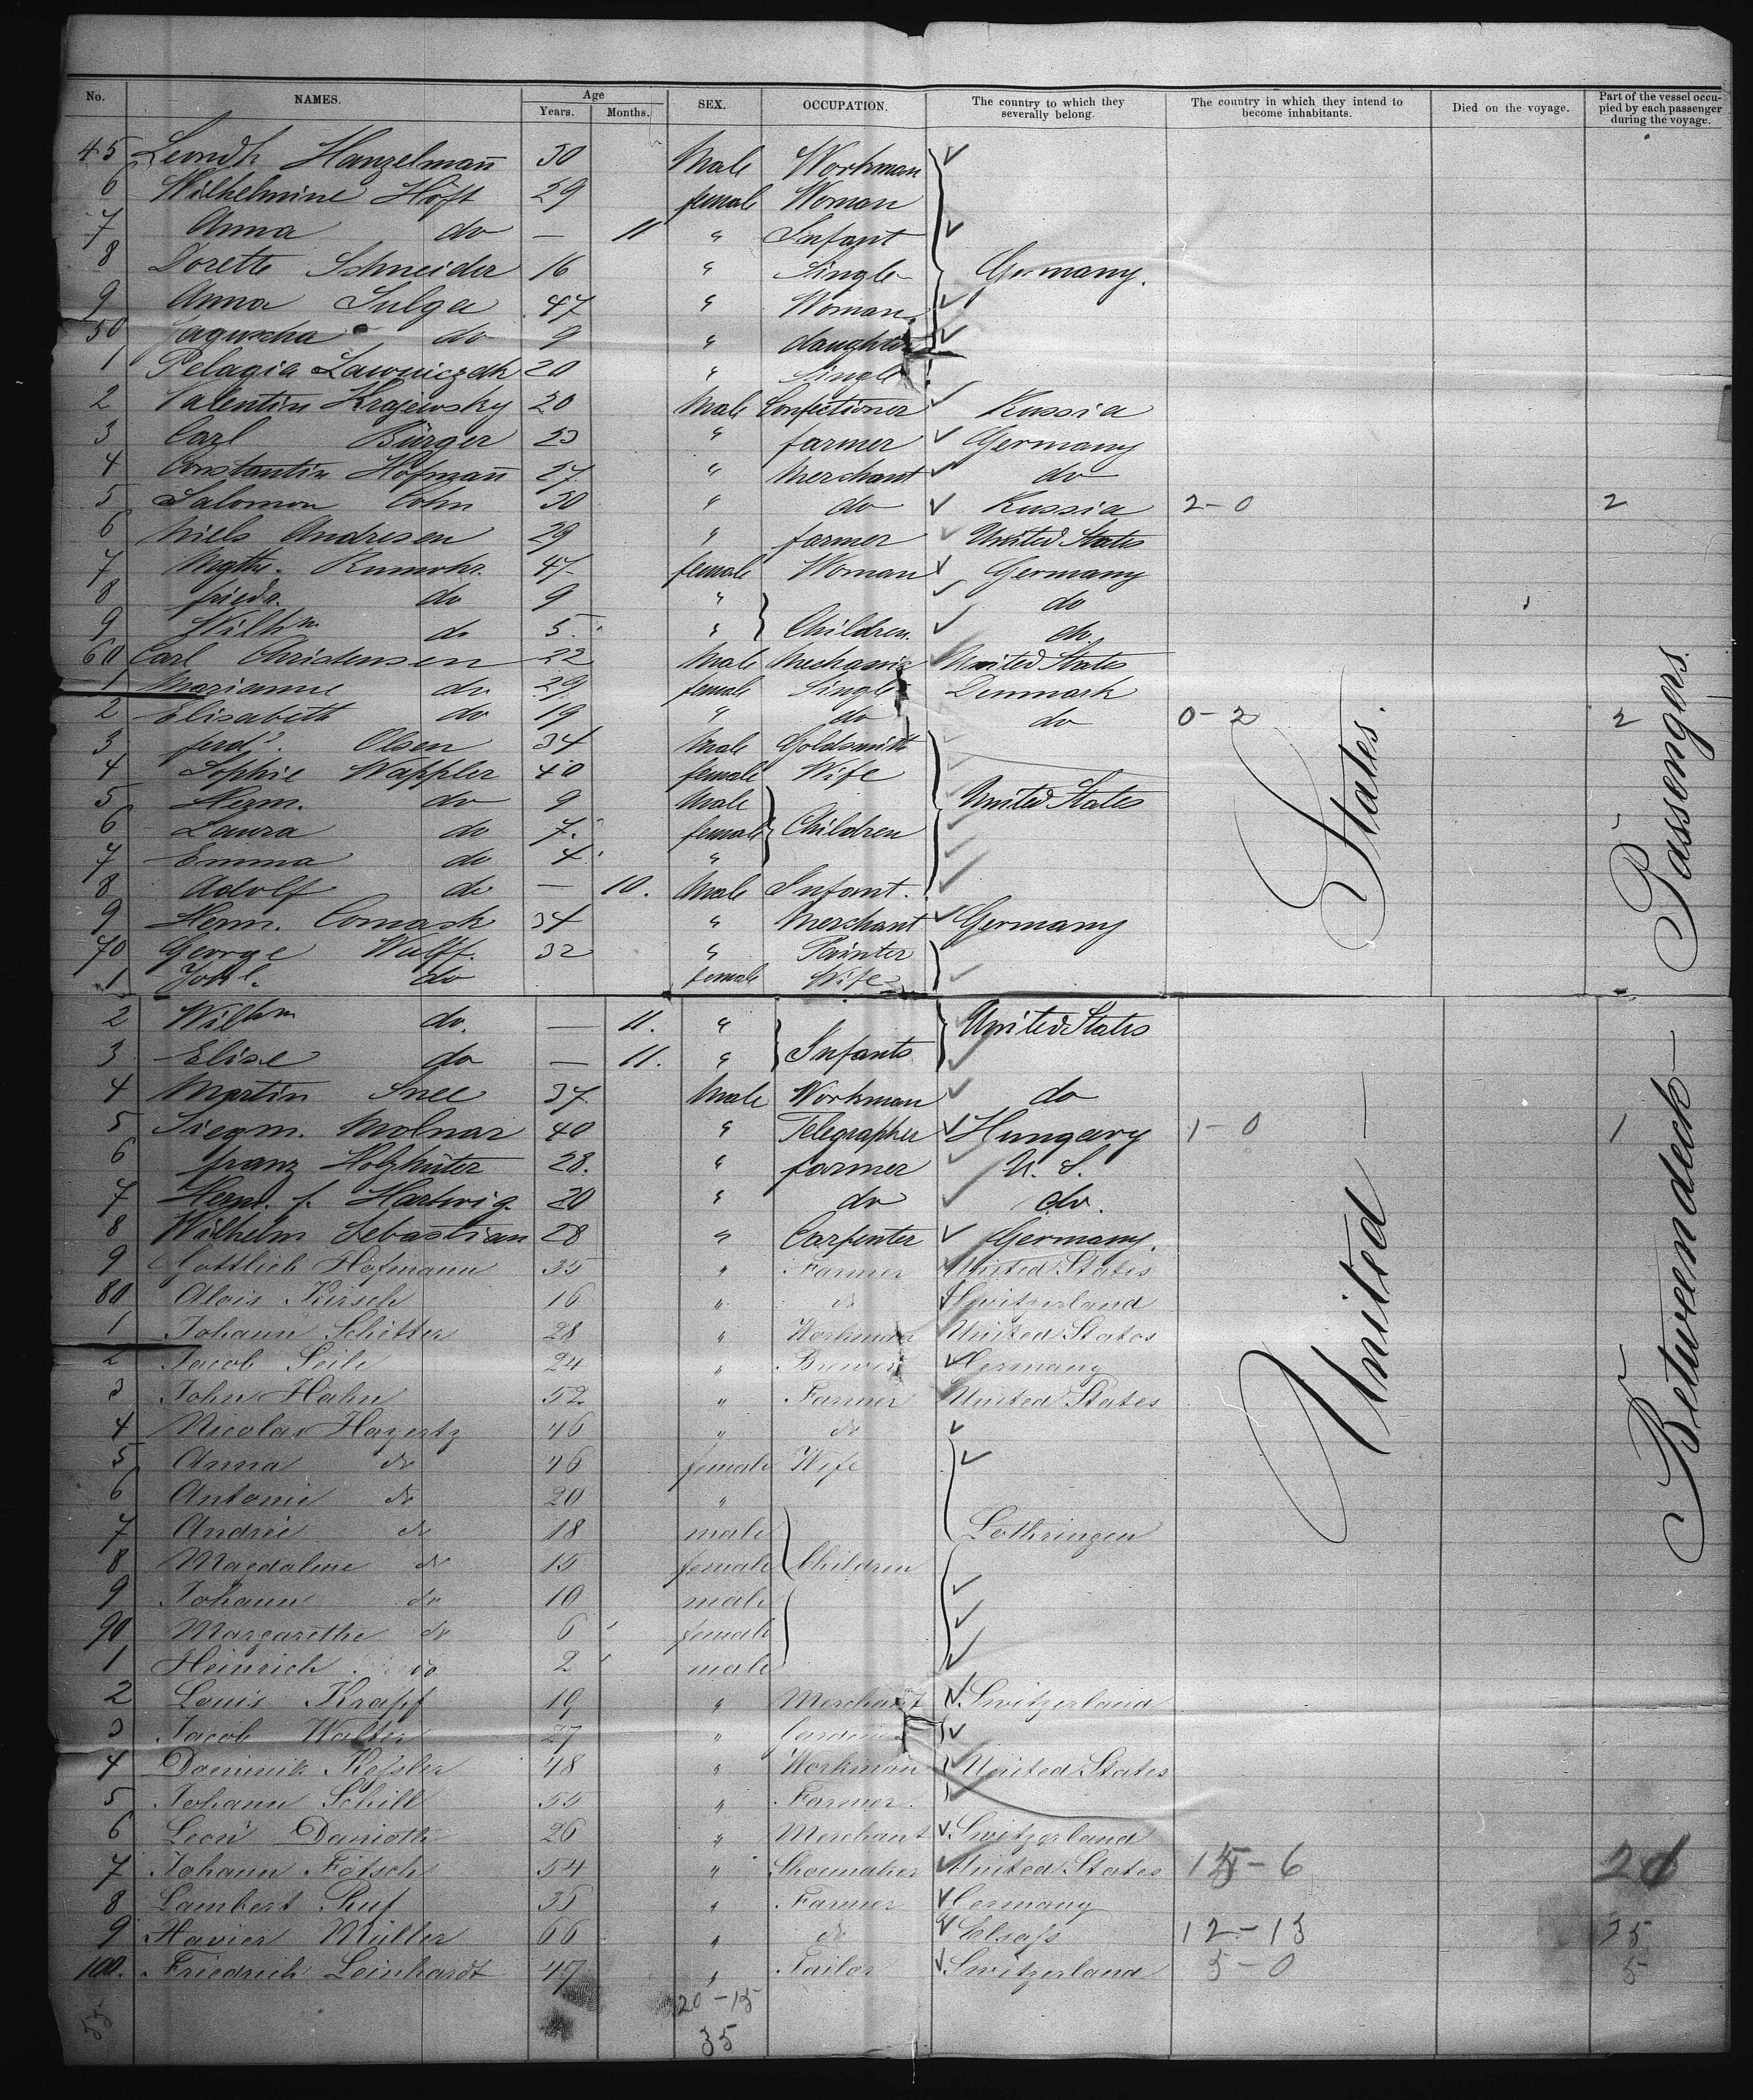 No. NAMES. Age Years. Months. SEX. OCCUPATION. The country to which they severally belong. The country in which they intend to become inhabitants. Died on the voyage. Part of the vessel occupied by each passenger during the voyage.
45 Leondh Hanzelmañ 30 Male Workman
6 Wilhelmine Höft 29 female Woman
7 Anna do — 11 " Infant
8 Dorette Schneider 16 " Single Germany.
9 Anna Sulga 47 " Woman
50 Jaguscha do 9 " daughter
1 Pelagia Lawniczak 20 " Single
2 Valentin Krajewsky 20 Male Confectioner Russia
3 Carl Bürger 23 " farmer Germany
4 Constantin Hofmañ 27 " Merchant do
5 Salomon Cohn 30 " do Russia 2-0 2
6 Niels Andresen 29 " farmer United States
7 Mgthe. Rumohr. 47 female Woman Germany
8 friedr. do 9 " do
9 Wilhm do 5 " Children. do.
60 Carl Christensen 22 Male Mechanic United States
1 Marianne do 29 female Single Denmark
2 Elisabeth do 19 " do do 0-2 2
3 ferd. Olsen 34 Male Goldsmith
4 Sophie Wappler 40 female Wife
5 Herm. do 9 Male United States
6 Laura do 7 female Children
7 Emma do 4 "
8 Adolf do — 10. Male Infant.
9 Herm. Comash 34 " Merchant Germany
70 George Wulff. 32 " Painter
1 Joh do female Wife
2 Wilhm do. — 11. " United States
3 Elise do — 11. " Infants
4 Martin Snee 37 Male Workman do
5 Siegm. Molnar 40 " Telegrapher Hungary 1-0 1
6 franz Holzhüter 28. " farmer U. S.
7 Herm. f. Hartwig. 20 " do do.
8 Wilhelm Sebastian 28 " Carpenter Germany.
9 Gottlieb Hofmann 35 " Farmer United States
80 Alois Kirsch 16 " do Switzerland
1 Johann Schetter 28 " Workman United States
2 Jacob Seile 24 " Brewer Germany
3 John Hahn 52 " Farmer United States
4 Nicolas Hagertz 46 " do
5 Anna do 46 female Wife
6 Antonie do 20 "
7 Andreé do 18 male Lothringen
8 Magdalene do 15 female Children
9 Johann do 10 male
90 Margarethe do 6 female
1 Heinrich do 2 male
2 Louis Krapf 19 " Merchant Switzerland
3 Jacob Walter 27 "
4 Dominik Keßler 48 " Workman United States
5 Johann Schill 55 " Farmer.
6 Leon Danioth 26 " Merchant Switzerland
7 Johann Fötsch 54 " Shoemaker United States 15-6
8 Lambert Ruf 35 " Farmer Germany
9 Xavier Müller 66 " do Elsaß 12-13 25
100. Friedrich Leinhardt 47 " Tailor Switzerland 5-0 5
20-15
35
United States.
Betweendeck Passengers.